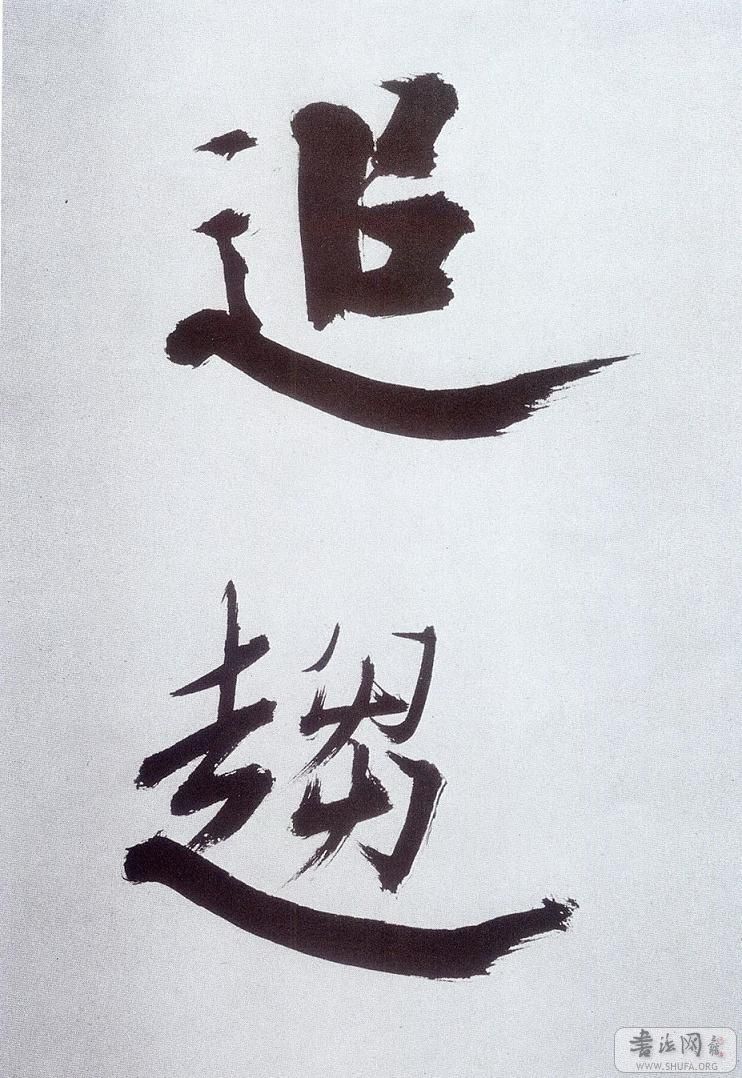 追
趨
书法网
WWW.SHUFA.ORG